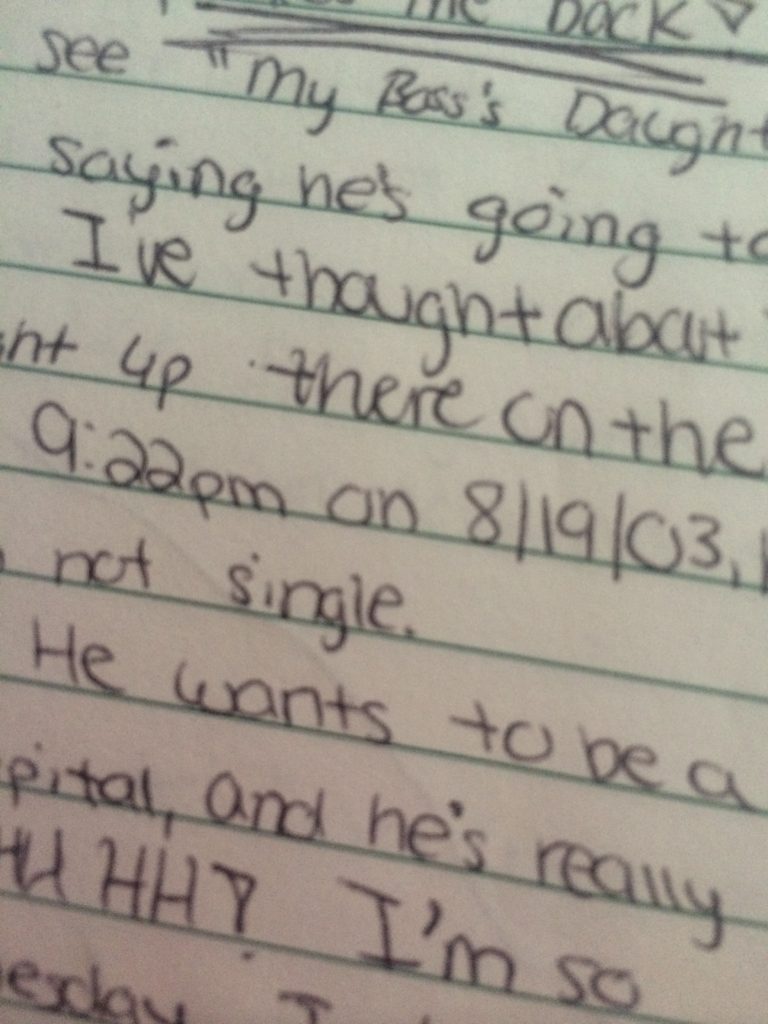 the back
see "My Boss's Daught
saying he's going to
I've thought about
ht up there on the
9:22pm on 8/19/03,
not single.
He wants to be a
pital, and he's really
HHH! I'm so
esday. I